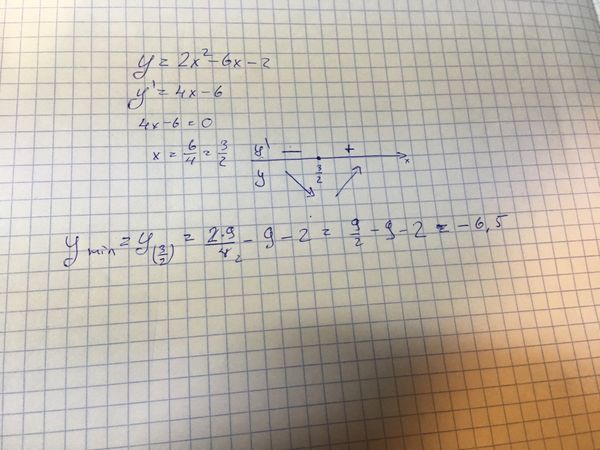 y = 2x² - 6x - 2
y' = 4x - 6
4x - 6 = 0
x = 6/4 = 3/2
y' - +
3/2 x
y
y min = y(3/2) = 2·9/4 2 - 9 - 2 = 9/2 - 9 - 2 = -6,5